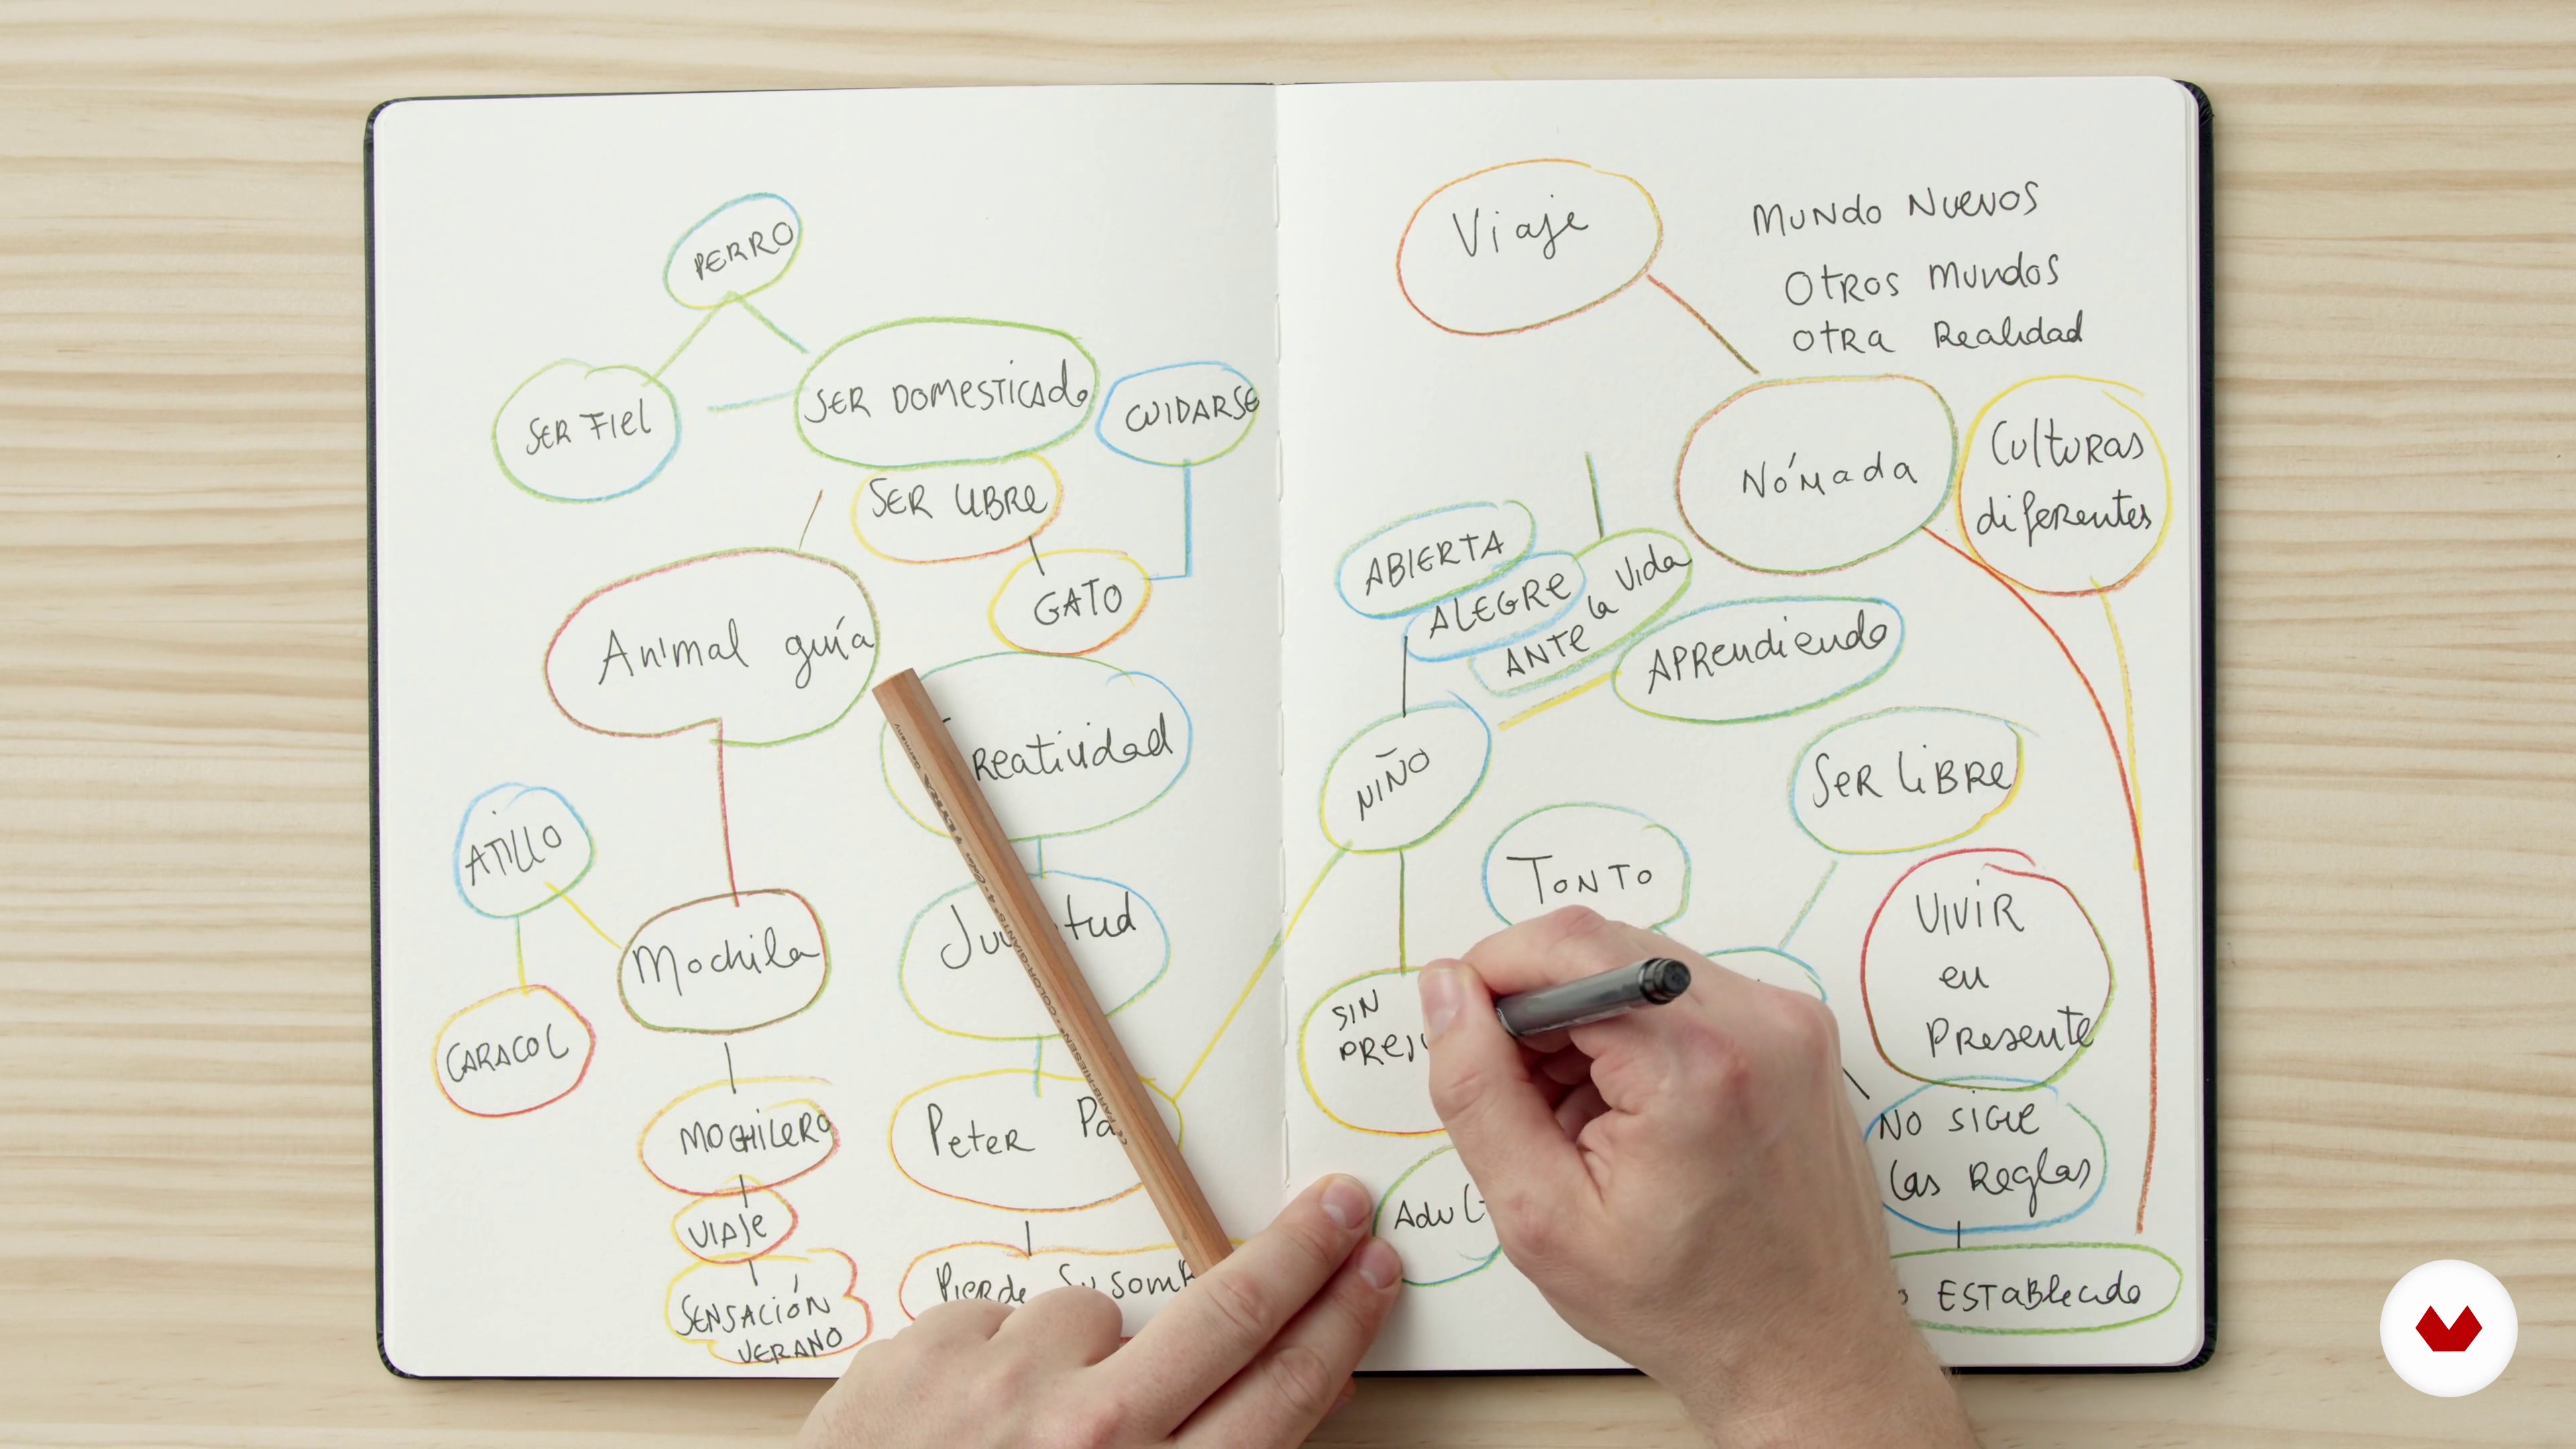 PERRO
SER FIEL
SER DOMESTICADO
CUIDARSE
SER LIBRE
GATO
Animal guía
reatividad
ATILLO
Mochila
CARACOL
MOCHILERO
VIAJE
SENSACIÓN
VERANO
Peter
Pierde Su
Viaje
MUNDO NUEVOS
OTROS MUNDOS
OTRA Realidad
Nómada
Culturas
diferentes
ABIERTA
ALEGRE
ANTE la Vida
APRendiendo
NIÑO
SER LIBRE
TONTO
VIVIR
en
Presente
SIN
NO SIGUE
las Reglas
ESTABlecido